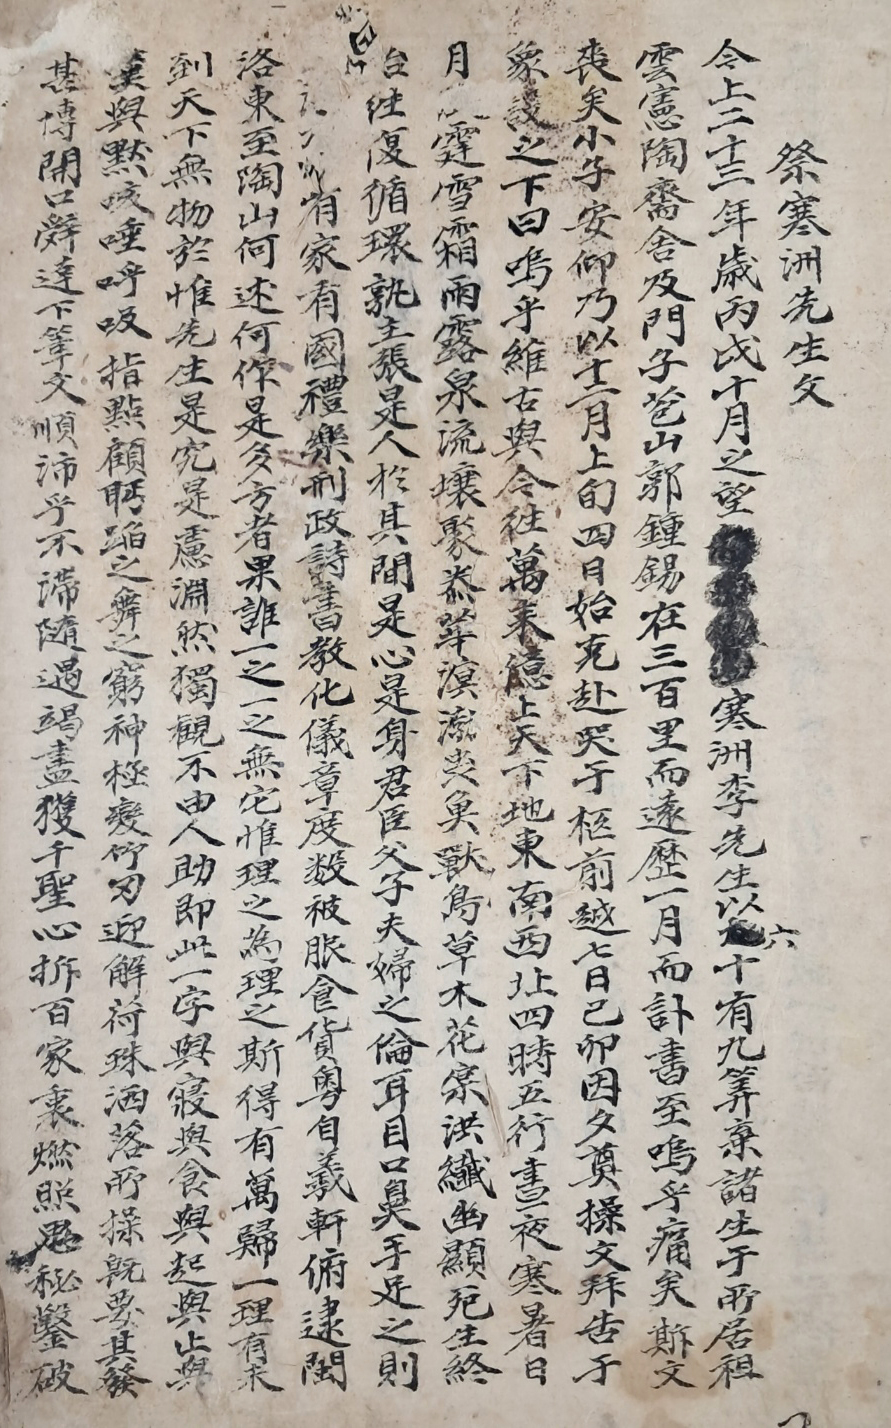 祭寒洲先生文
令上二十三年歲丙戌十月之望寒洲李先生以六十有九筭棄諸生于所居祖
雲憲陶齋舍及門子苞山郭鍾錫在三百里而遠歷一月而訃書至嗚乎痛矣斯文
喪矣小子安仰乃以十二月上旬四日始克赴哭于柩前越七日己卯因夕奠操文拜告于
象設之下曰嗚乎維古與今往萬來億上天下地東南西北四時五行晝夜寒暑日
月霆雪霜雨露泉流壤聚岺崒溟瀛虫魚獸鳥草木花寀洪纖幽顯死生終
始往復循環孰主張是人於其間是心是身君臣父子夫婦之倫耳目口鼻手足之則
有家有國禮樂刑政詩書教化儀章度數被服食貨粤自羲軒俯逮閩
洛東至陶山何述何作是多方者果誰一之一之無它惟理之為理之斯得有萬歸一理有未
到天下無物於惟先生是究是慮淵然獨觀不由人助即此一字與寢與食與起與止與
笑與默咳唾呼吸指點顧眄蹈之舞之窮神極變竹刃迎解荷珠洒落所操旣要其發
甚博開口辭達下筆文順沛乎不滯隨遇竭盡獲千聖心折百家衷燃照秘鑿破